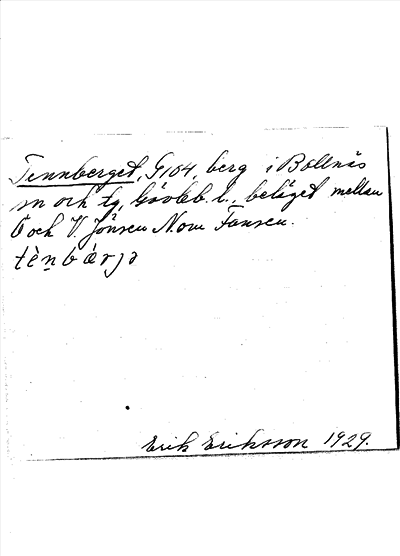 Tennberget, G104, berg i Bollnäs
sn och tg, Gävleb. l., beläget mellan
Ö och V. Jönsen N om Fansen.
tènbærjə
Erik Eriksson 1929.